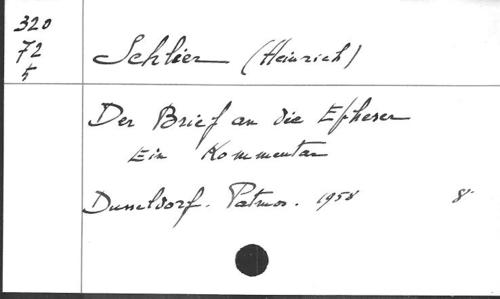 320
72
5
Schlier (Heinrich)
Der Brief an die Epheser
Ein Kommentar
Dusseldorf. Patmos. 1958 8°